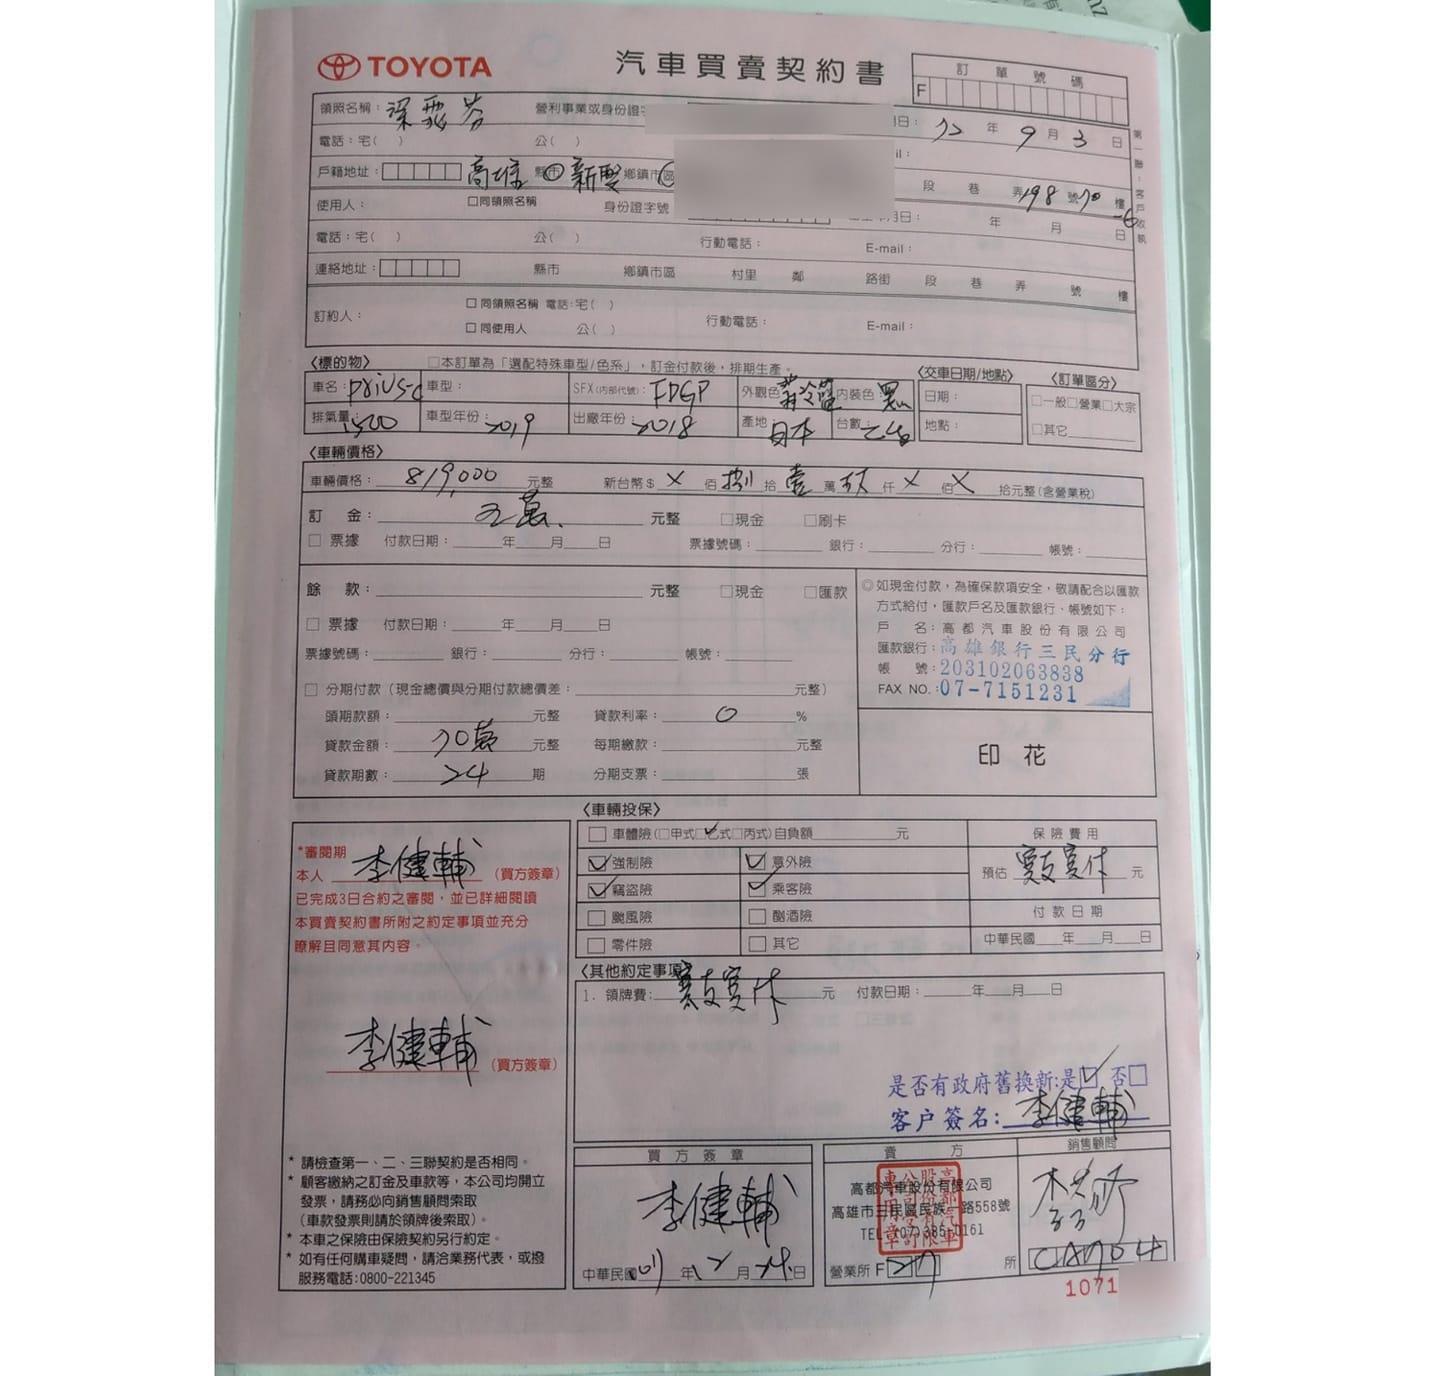 TOYOTA 汽車買賣契約書 訂單號碼
F
領照名稱： 營利事業或身份證字 日： 72 年 9 月 3 日
電話：宅( ) 公( ) il：
第一聯：客戶收執
戶籍地址： 高雄 縣市 新興 鄉鎮市區 段 巷 弄 198 號 70 樓 -6
使用人： □同領照名稱 身份證字號 月日： 年 月 日
電話：宅( ) 公( ) 行動電話： E-mail：
連絡地址： 縣市 鄉鎮市區 村里 鄰 路街 段 巷 弄 號 樓
訂約人： □同領照名稱 電話：宅( ) 行動電話： E-mail：
□同使用人 公( )
〈標的物〉 □本訂單為「選配特殊車型/色系」，訂金付款後，排期生產。 〈交車日期/地點〉 〈訂單區分〉
車名：prius-c 車型： SFX(內部代號)： 外觀色： 內裝色：黑 日期： □一般□營業□大宗
排氣量：1500 車型年份：2019 出廠年份：2018 產地：日本 台數： 地點： □其它
〈車輛價格〉
車輛價格：819,000 元整 新台幣$ X 佰 捌 拾 壹 萬 玖 仟 X 佰 X 拾元整(含營業稅)
訂 金：五萬. 元整 □現金 □刷卡
□票據 付款日期： 年 月 日 票據號碼： 銀行： 分行： 帳號：
餘 款： 元整 □現金 □匯款
□票據 付款日期： 年 月 日
票據號碼： 銀行： 分行： 帳號：
□分期付款（現金總價與分期付款總價差： 元整）
頭期款額： 元整 貸款利率： 0 %
貸款金額：70萬 元整 每期繳款： 元整
貸款期數：24 期 分期支票： 張
◎如現金付款，為確保款項安全，敬請配合以匯款
方式給付，匯款戶名及匯款銀行、帳號如下：
戶 名：高都汽車股份有限公司
匯款銀行：高雄銀行三民分行
帳 號：203102063838
FAX NO.：07-7151231
印花
*審閱期
本人 李健輔 （買方簽章）
已完成3日合約之審閱，並已詳細閱讀
本買賣契約書所附之約定事項並充分
瞭解且同意其內容。
李健輔 （買方簽章）
* 請檢查第一、二、三聯契約是否相同。
* 顧客繳納之訂金及車款等，本公司均開立
發票，請務必向銷售顧問索取
（車款發票則請於領牌後索取）。
* 本車之保險由保險契約另行約定。
* 如有任何購車疑問，請洽業務代表，或撥
服務電話：0800-221345
〈車輛投保〉
□ 車體險（□甲式☑乙式□丙式）自負額 元 保險費用
☑ 強制險 ☑ 意外險 預估 實支實付 元
☑ 竊盜險 ☑ 乘客險
□ 颱風險 □ 酗酒險 付款日期
□ 零件險 □ 其它 中華民國 年 月 日
〈其他約定事項〉
1. 領牌費：實支實付 元 付款日期： 年 月 日
是否有政府舊換新:是☑ 否□
客戶簽名：李健輔
買方簽章 賣方 銷售顧問
李健輔
中華民國 107 年 12 月 24 日
高都汽車股份有限公司
高雄市三民區民族一路558號
TEL:(07)385-0161
營業所 F 27 所
1071